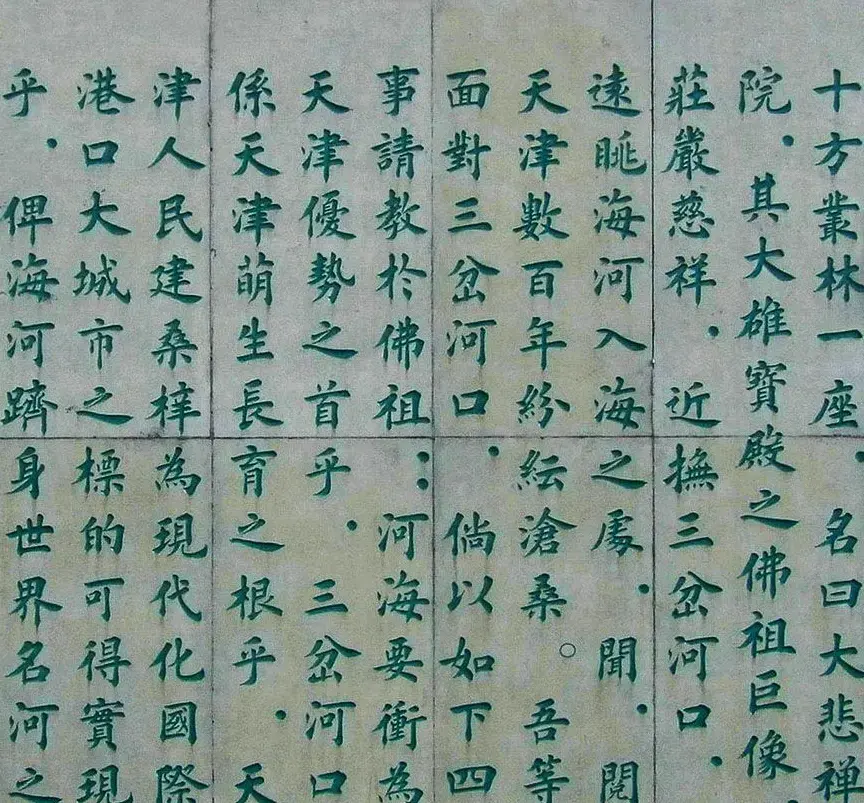 十方叢林一座．名曰大悲禅
院．其大雄寶殿之佛祖巨像．
莊嚴慈祥．近撫三岔河口．
遠眺海河入海之處．聞．閱
天津數百年紛紜滄桑。吾等
面對三岔河口．倘以如下四
事請教於佛祖：河海要衝為
天津優勢之首乎．三岔河口
係天津萌生長育之根乎．天
津人民建桑梓為現代化國際
港口大城市之標的可得實現
乎．俾海河躋身世界名河之